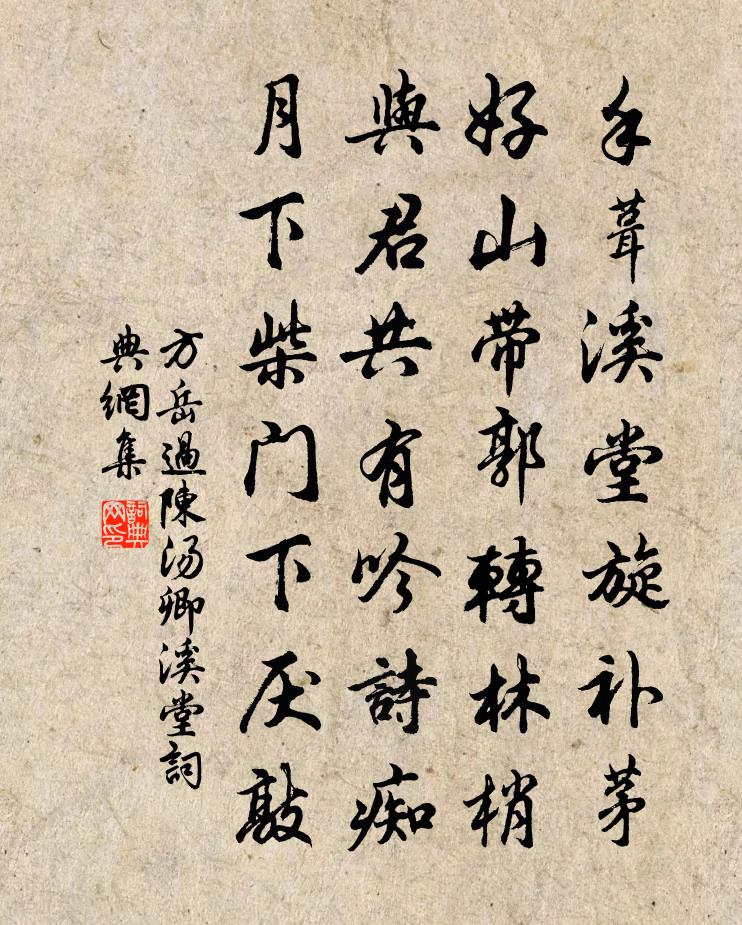 手葺溪堂旋补茅
好山带郭轉林梢
與君共有吟詩痴
月下柴门下厌敲
方岳過陳汤卿溪堂詞
典網集
詞典
网印